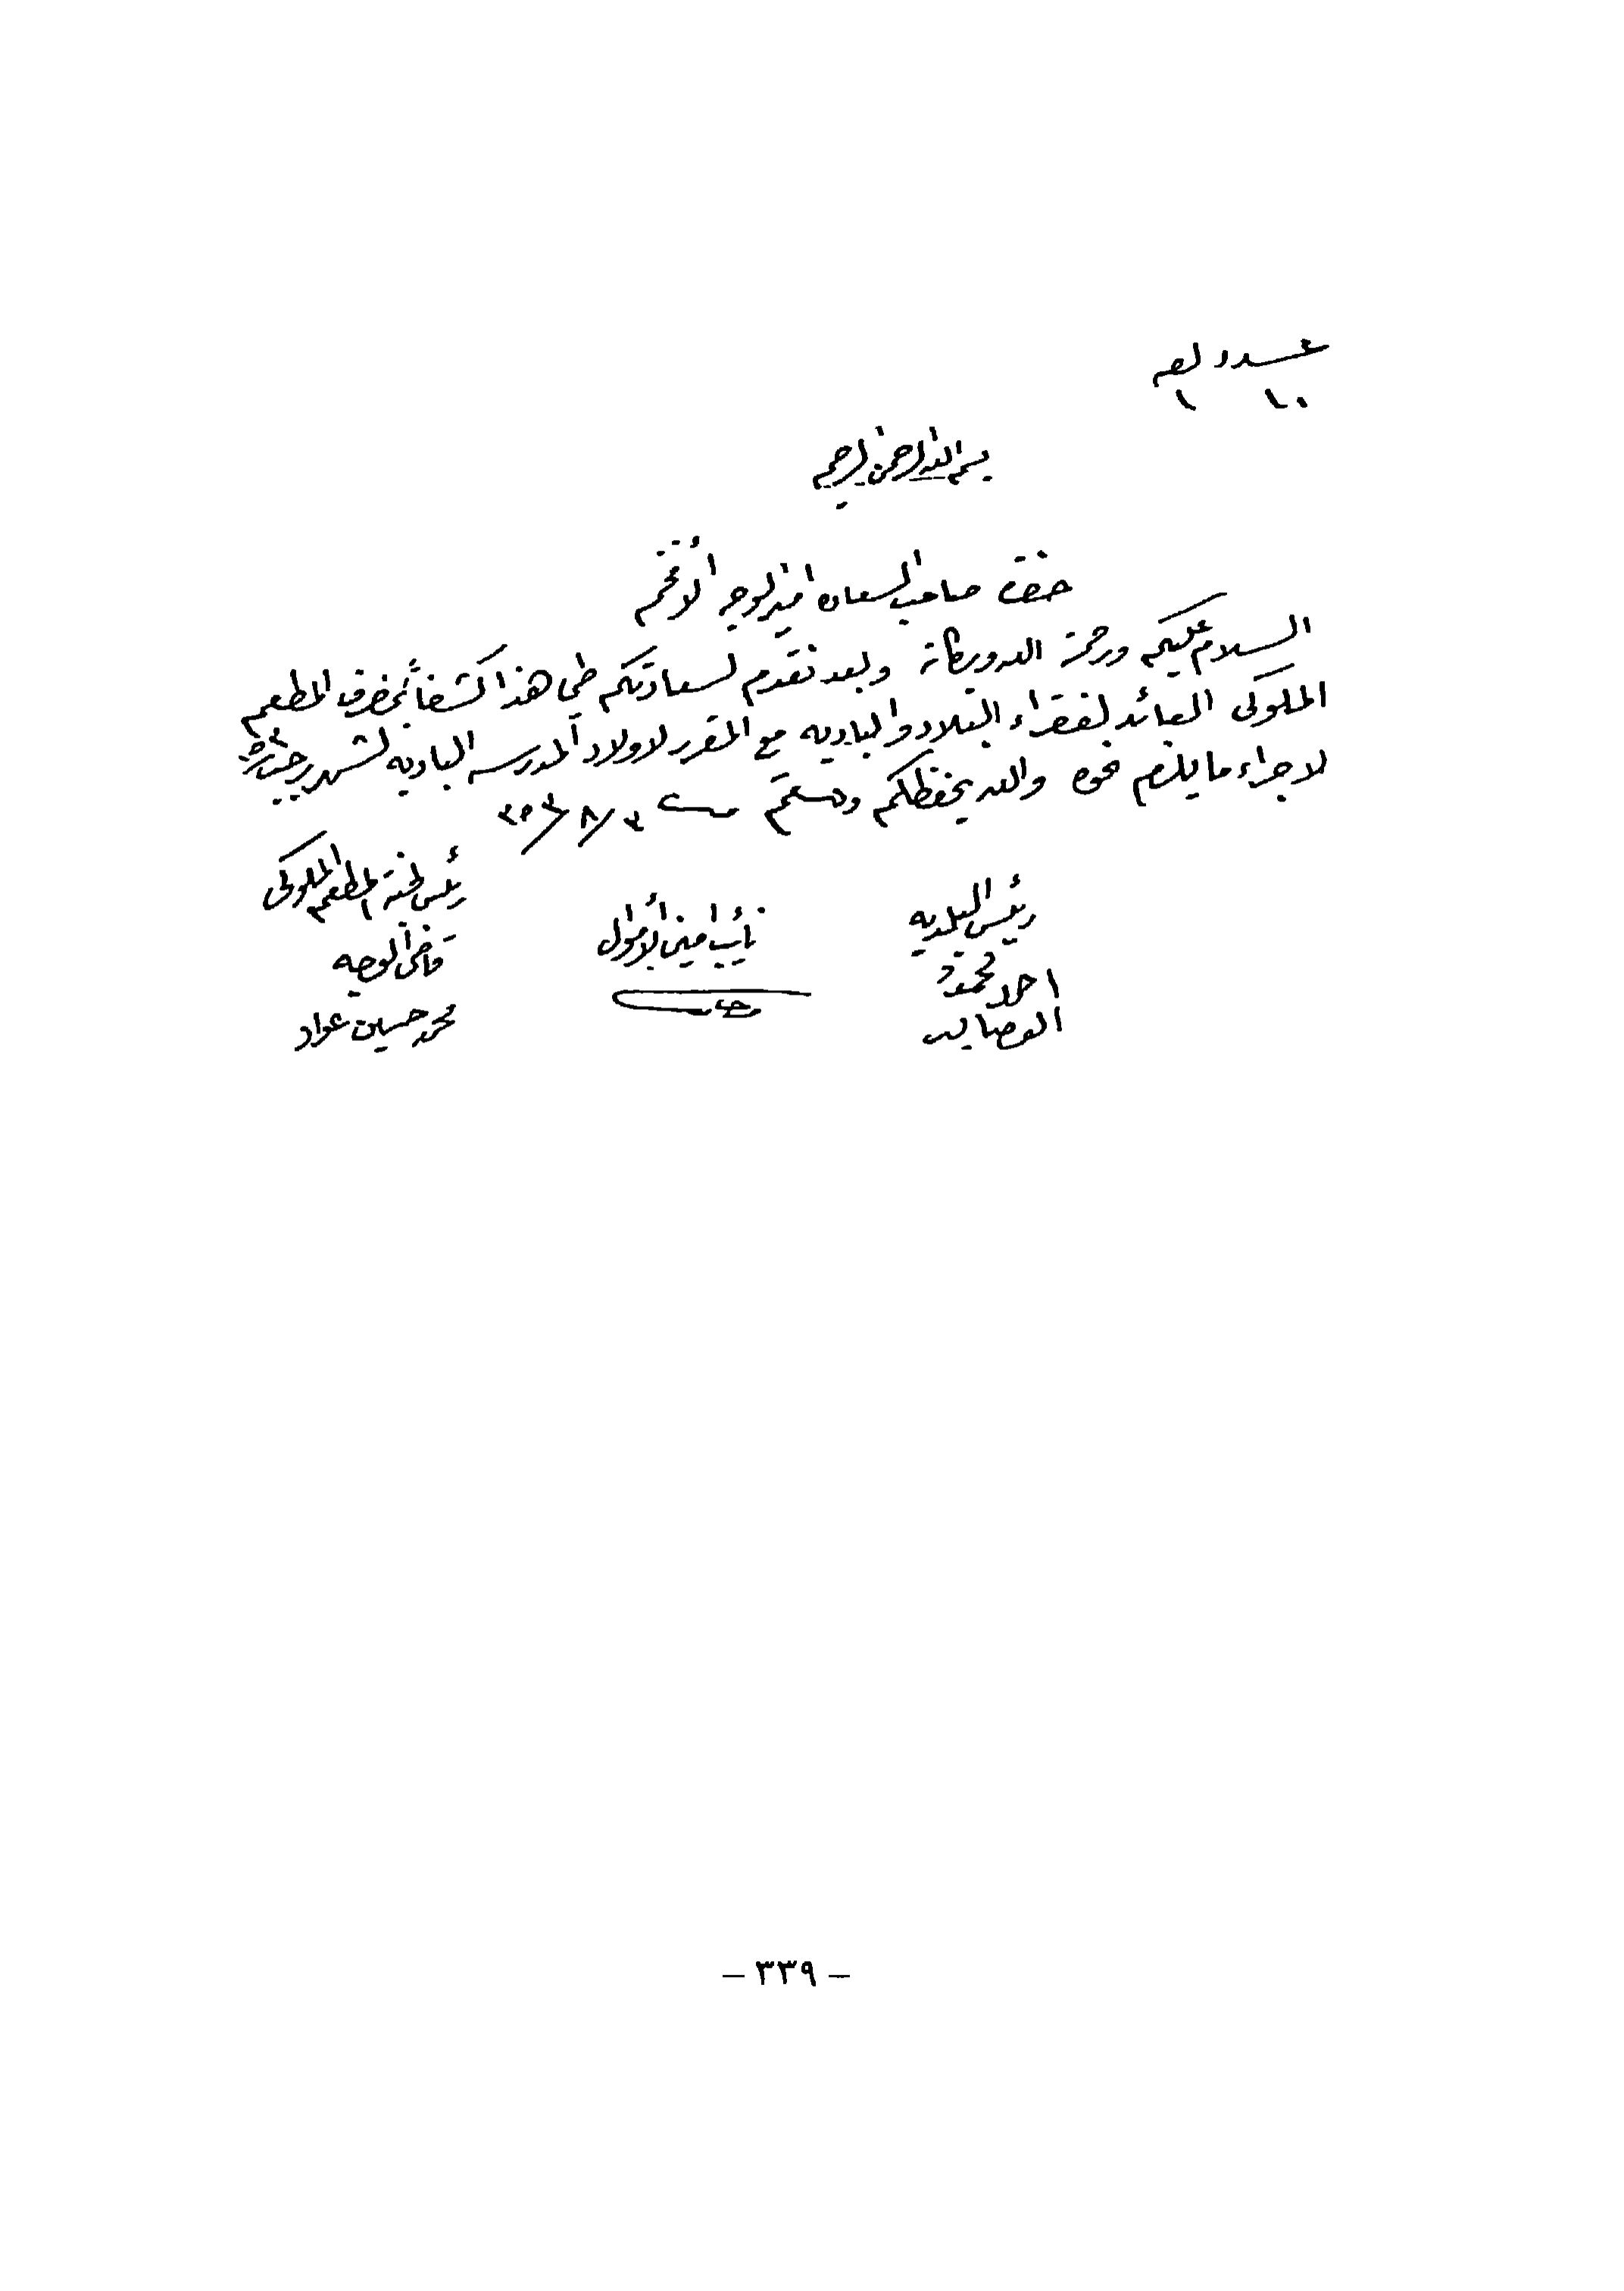 عدد لفه
١٠ ١
بسم الله الرحمن الرحيم
حضرة صاحب السعاده امير الوجه الأفخم
السلام عليكم ورحمة الله وبركاته وبعد نقدم لسعادتكم طي هذا كشفاً بمصرف المطعم
الملوكى العائد لفقراء البلاد والباديه مع المقرر لاولاد المدرسه الباديه لشهر رجب
لاجراء ما يلزم نحوه والله يحفظكم ودمتم
رئيس البلديه
احمد محمد
نائب امين الأموال
رئيس لجنة المطعم الملوكى
قاضى الوجه
محمد حسين عواد
– ٣٣٩ –